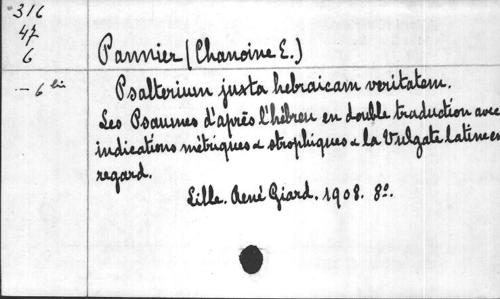 316
47
6
Pannier (Chanoine E.)
— 6 bis
Psalterium juxta hebraicam veritatem.
Les Psaumes d'après l'hébreu en double traduction avec
indications métriques & strophiques & la Vulgate latine en
regard.
Lille. René Giard. 1908. 8o.